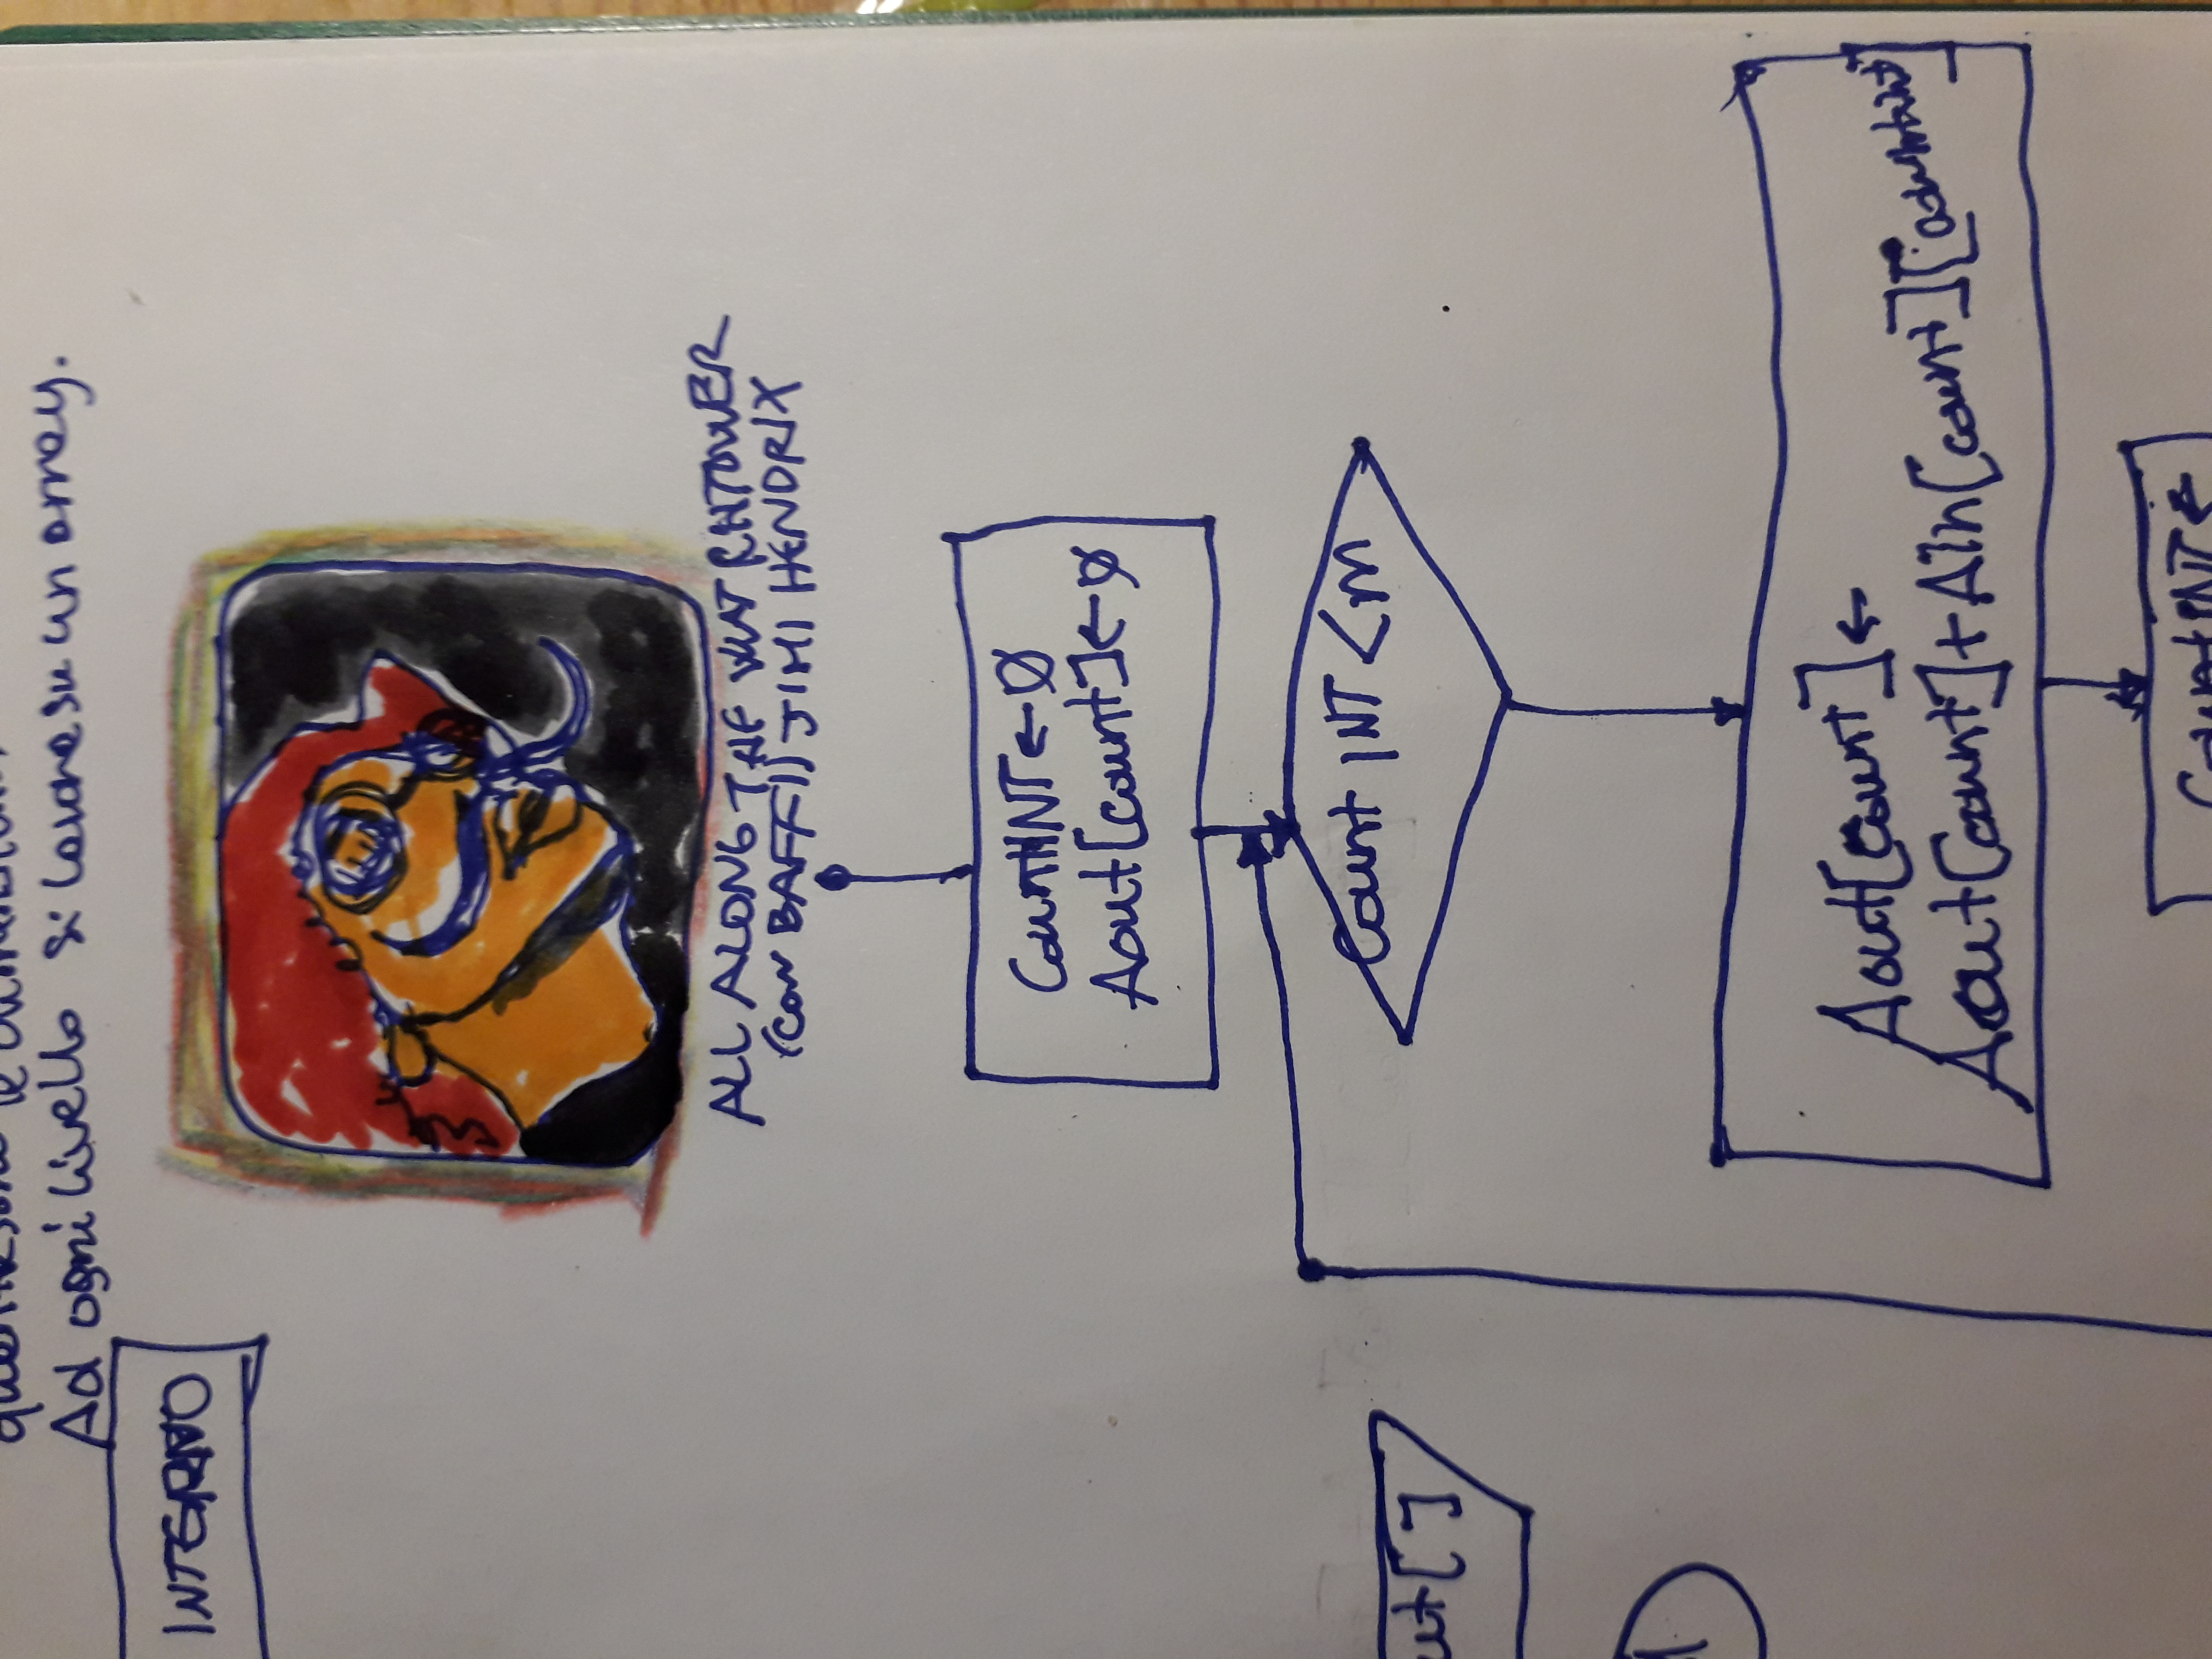 quante sono le dimensioni
Ad ogni livello si lavora su un array.
INTERNO
ALL ALONG THE WATCHTOWER
(con BAFFI) JIMI HENDRIX
CountINT ← Ø
Aout[count] ← Ø
Count INT < m
ut[ ]
Aout[count] ←
Aout[count] + Ain[count][countint]
CountINT ←